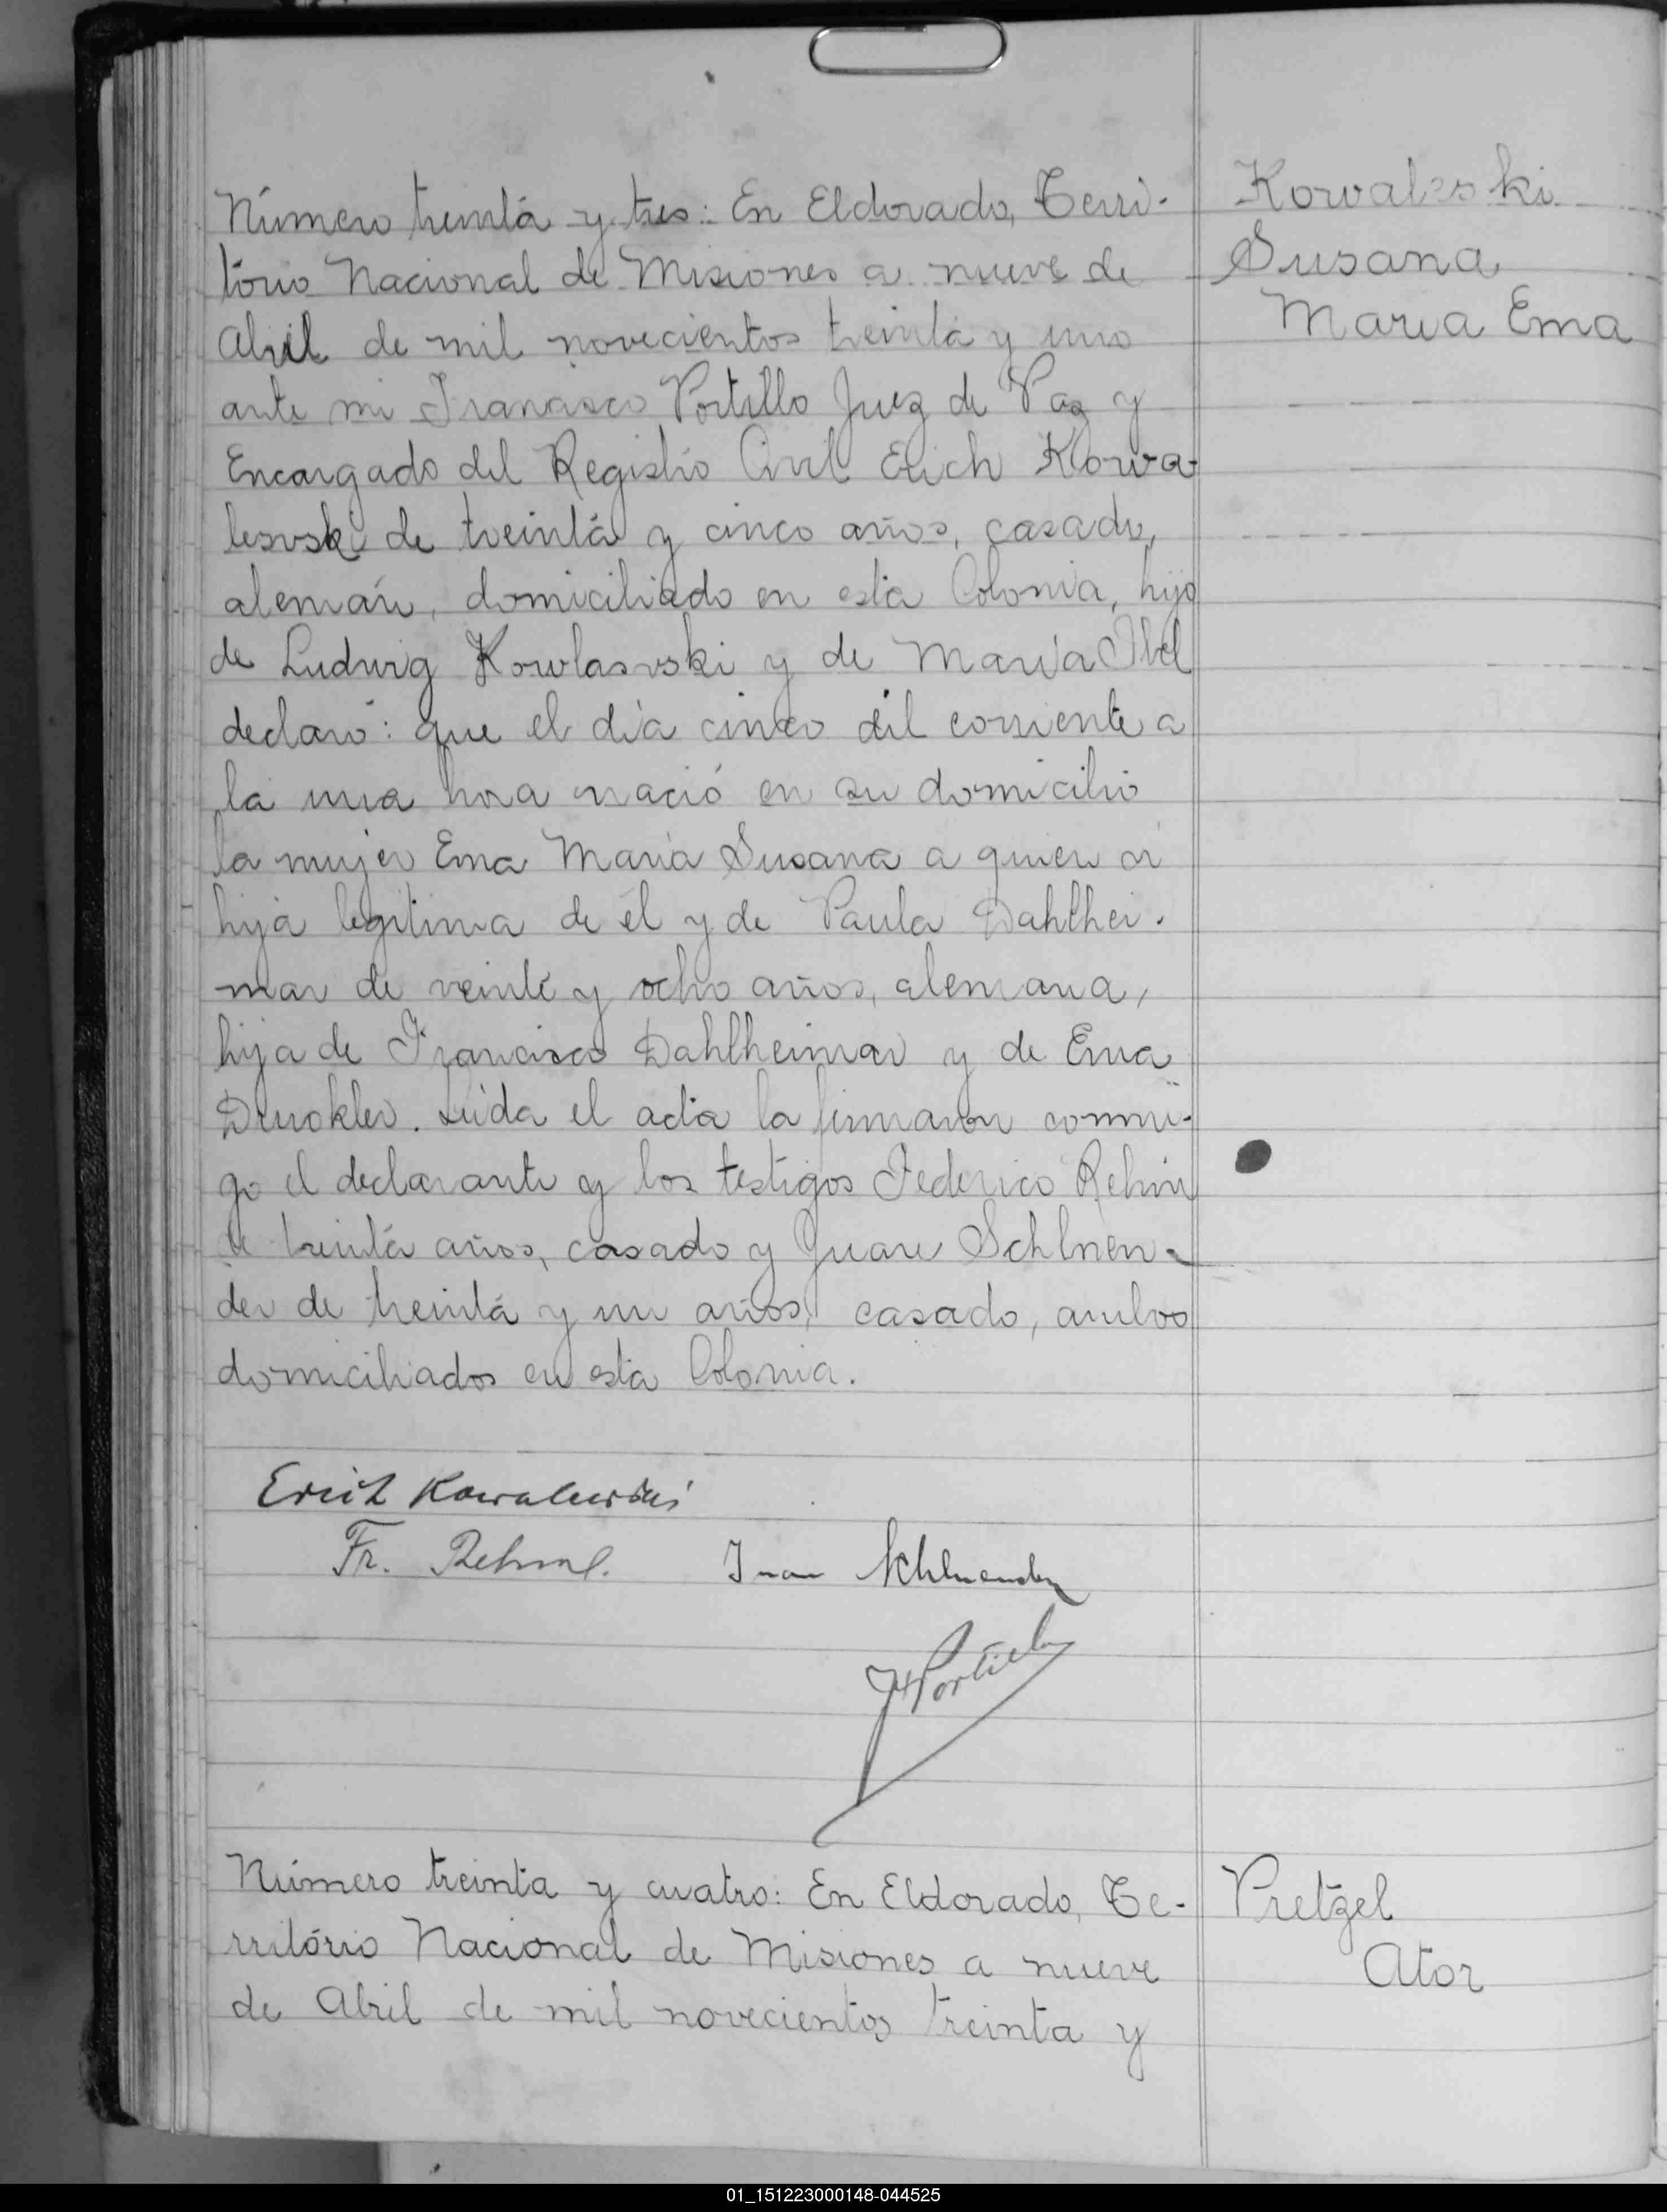 Número treinta y tres: En Eldorado, Terri-
torio Nacional de Misiones a nueve de
Abril de mil novecientos treinta y uno
ante mi Francisco Portillo Juez de Paz y
Encargado del Registro Civil Erich Kowa-
lesvski de treinta y cinco años, casado,
alemán, domiciliado en esta Colonia, hijo
de Ludwig Kowlasvski y de María
declaró: que el día cinco del corriente a
la una hora nació en su domicilio
la mujer Ema María Susana a quien vi
hija legitima de él y de Paula Dahlhei-
mar de veinte y ocho años, alemana,
hija de Francisco Dahlheimar y de Ema
Leída el acta la firmaron conmi-
go el declarante y los testigos Federico Rehm
de treinta años, casado y Juan Schlnen-
der de treinta y un años, casado, ambos
domiciliados en esta Colonia.
Kowaleski
Susana
Maria Ema
Erich Kowalewski
Fr. Rehm
Juan Schlnender
Portillo
Número treinta y cuatro: En Eldorado, Te-
rritório Nacional de Misiones a nueve
de Abril de mil novecientos treinta y
Pretzel
Ator
01_151223000148-044525